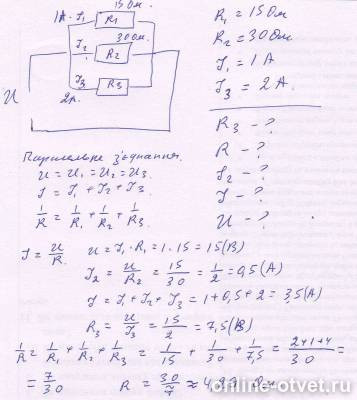 15 Ом.
1А - I₁ R₁
30 Ом.
I₂ R₂
I₃ R₃
U 2А.
R₁ = 15 Ом
R₂ = 30 Ом
I₁ = 1 А
I₃ = 2 А.
R₃ - ?
R - ?
I₂ - ?
I - ?
U - ?
Паралельне з'єднання.
U = U₁ = U₂ = U₃.
I = I₁ + I₂ + I₃.
1/R = 1/R₁ + 1/R₂ + 1/R₃
I = U/R. U = I₁ · R₁ = 1 · 15 = 15 (В)
I₂ = U/R₂ = 15/30 = 1/2 = 0,5 (А)
I = I₁ + I₂ + I₃ = 1 + 0,5 + 2 = 3,5 (А)
R₃ = U/I₃ = 15/2 = 7,5
1/R = 1/R₁ + 1/R₂ + 1/R₃ = 1/15 + 1/30 + 1/7,5 = (2+1+4)/30 =
= 7/30 R = 30/7 ≈
online-otvet.ru